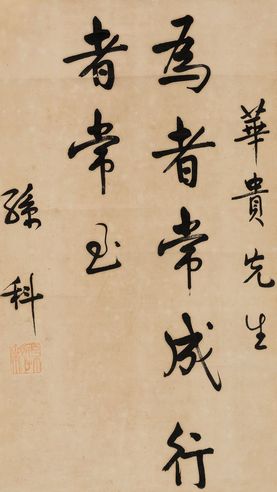 華貴先生
為者常成行
者常至
孫科